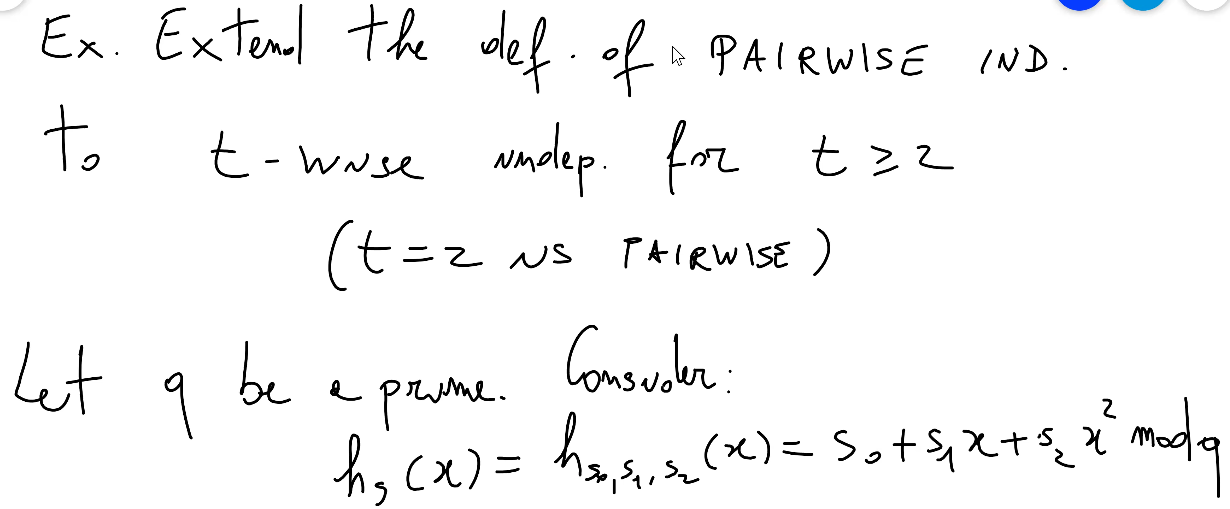 Ex. Extend the def. of PAIRWISE IND.
to t-wise indep. for t ≥ 2
(t=2 is PAIRWISE)
Let q be a prime. Consider:
h_s(x) = h_{s_0,s_1,s_2}(x) = s_0 + s_1 x + s_2 x^2 mod q